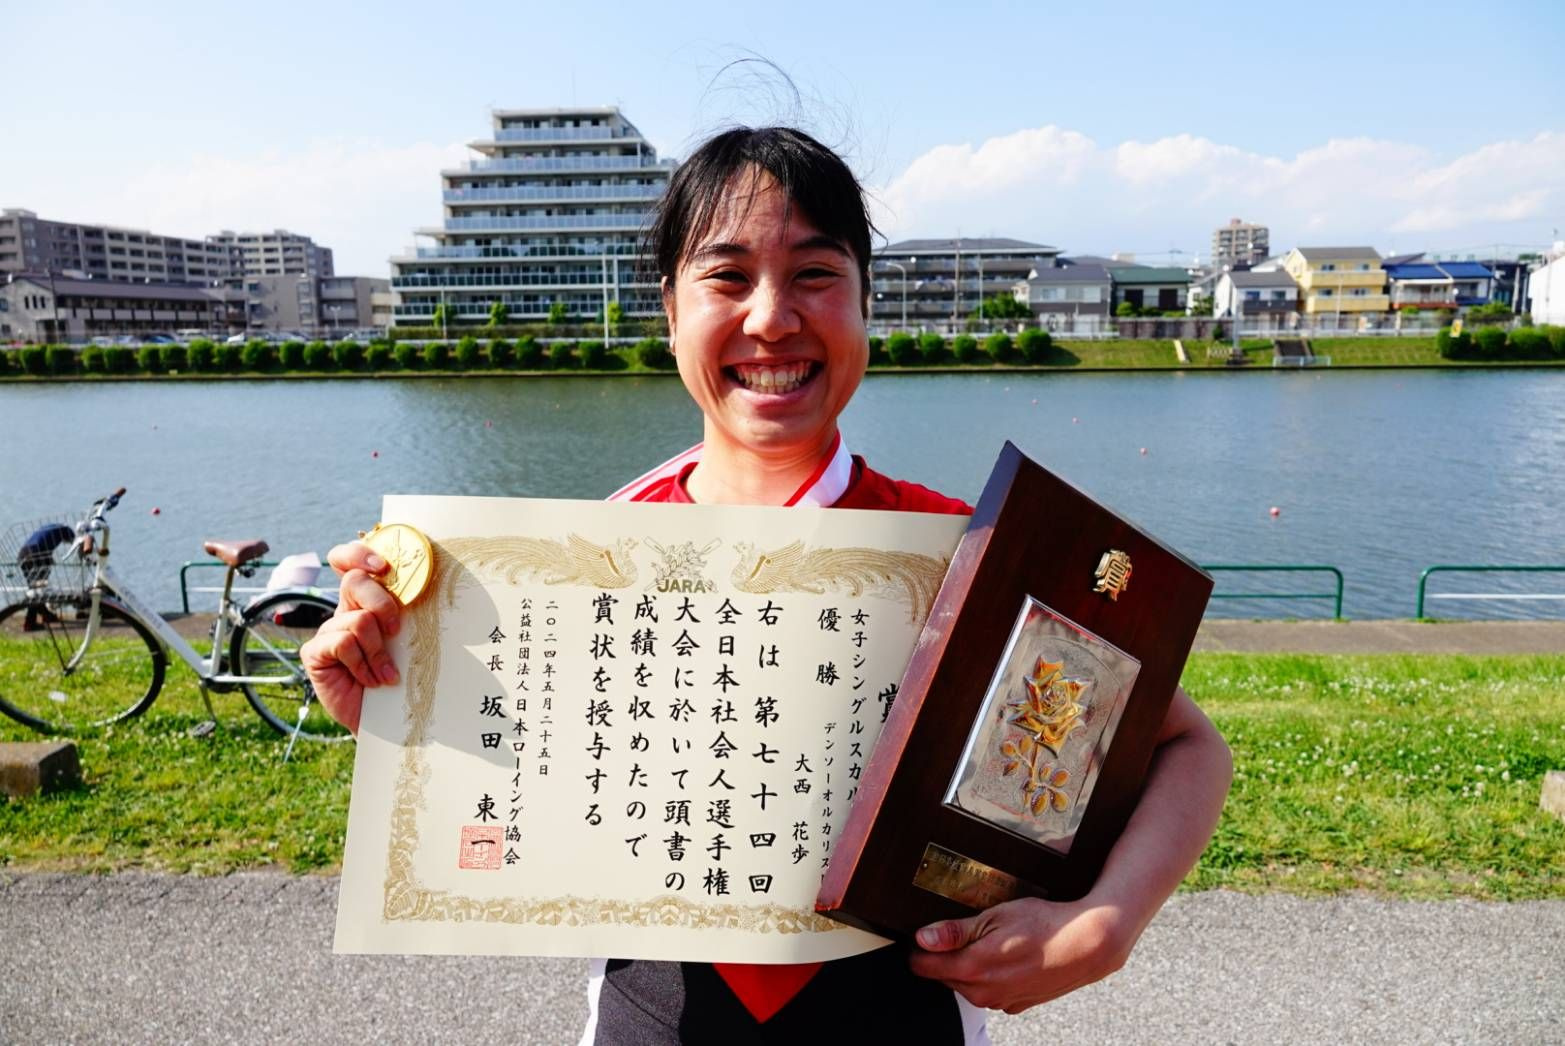 JARA
賞
女子シングルスカル
優勝
デンソーオルカリス
大西 花歩
右は第七十四回
全日本社会人選手権
大会に於いて頭書の
成績を収めたので
賞状を授与する
二〇二四年五月二十五日
公益社団法人日本ローイング協会
会長 坂田 東一
賞